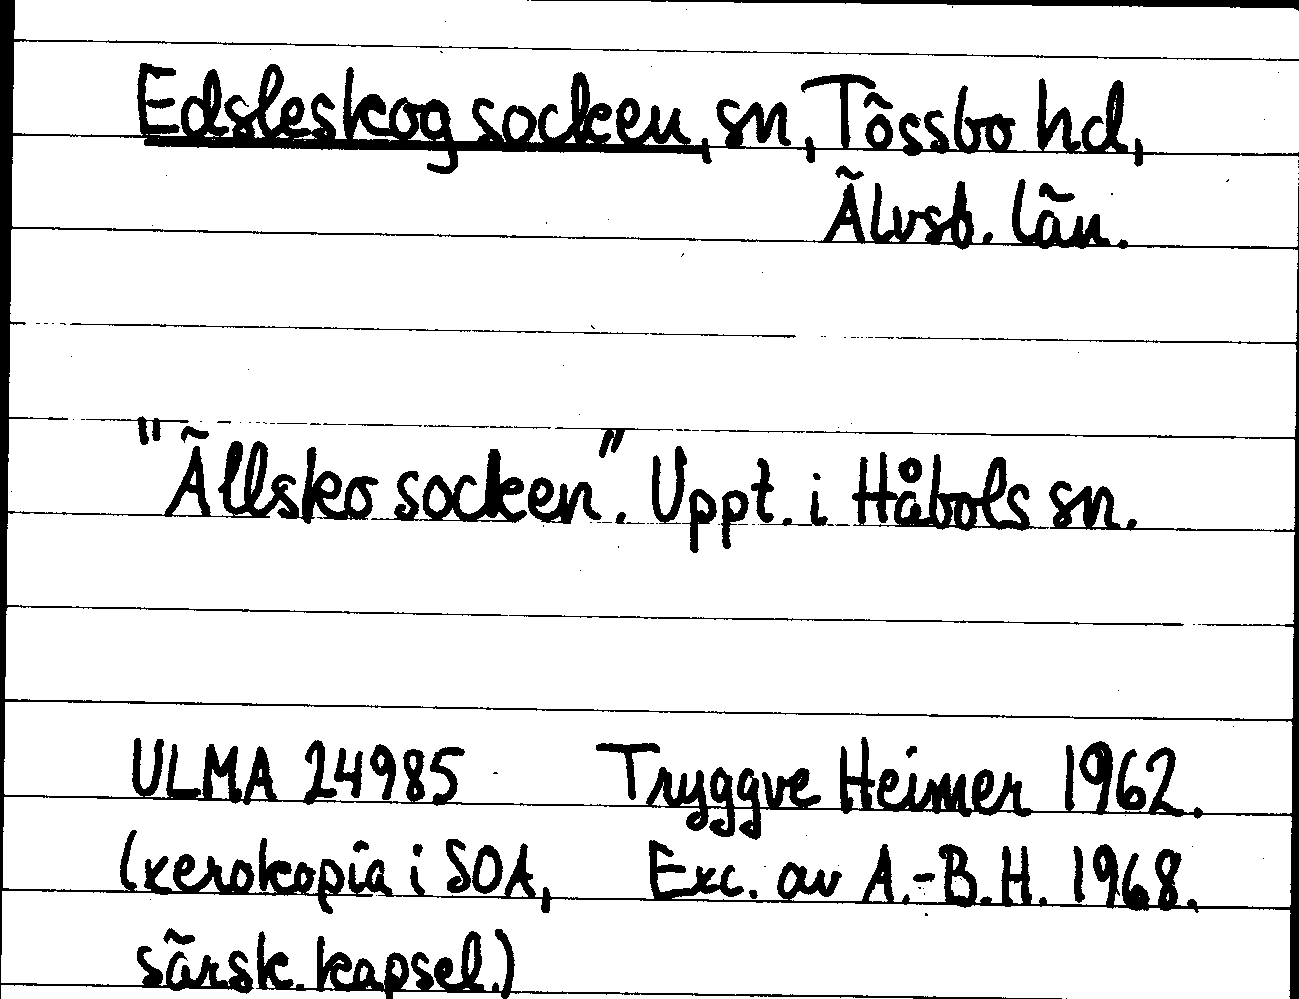 Edsleskog socken, sn, Tössbo hd,
Älvsb. län.
"Ällsko socken". Uppt. i Håbols sn.
ULMA 24985 Tryggve Heimer 1962.
(xerokopia i SOA, Exc. av A.-B.H. 1968.
särsk. kapsel.)